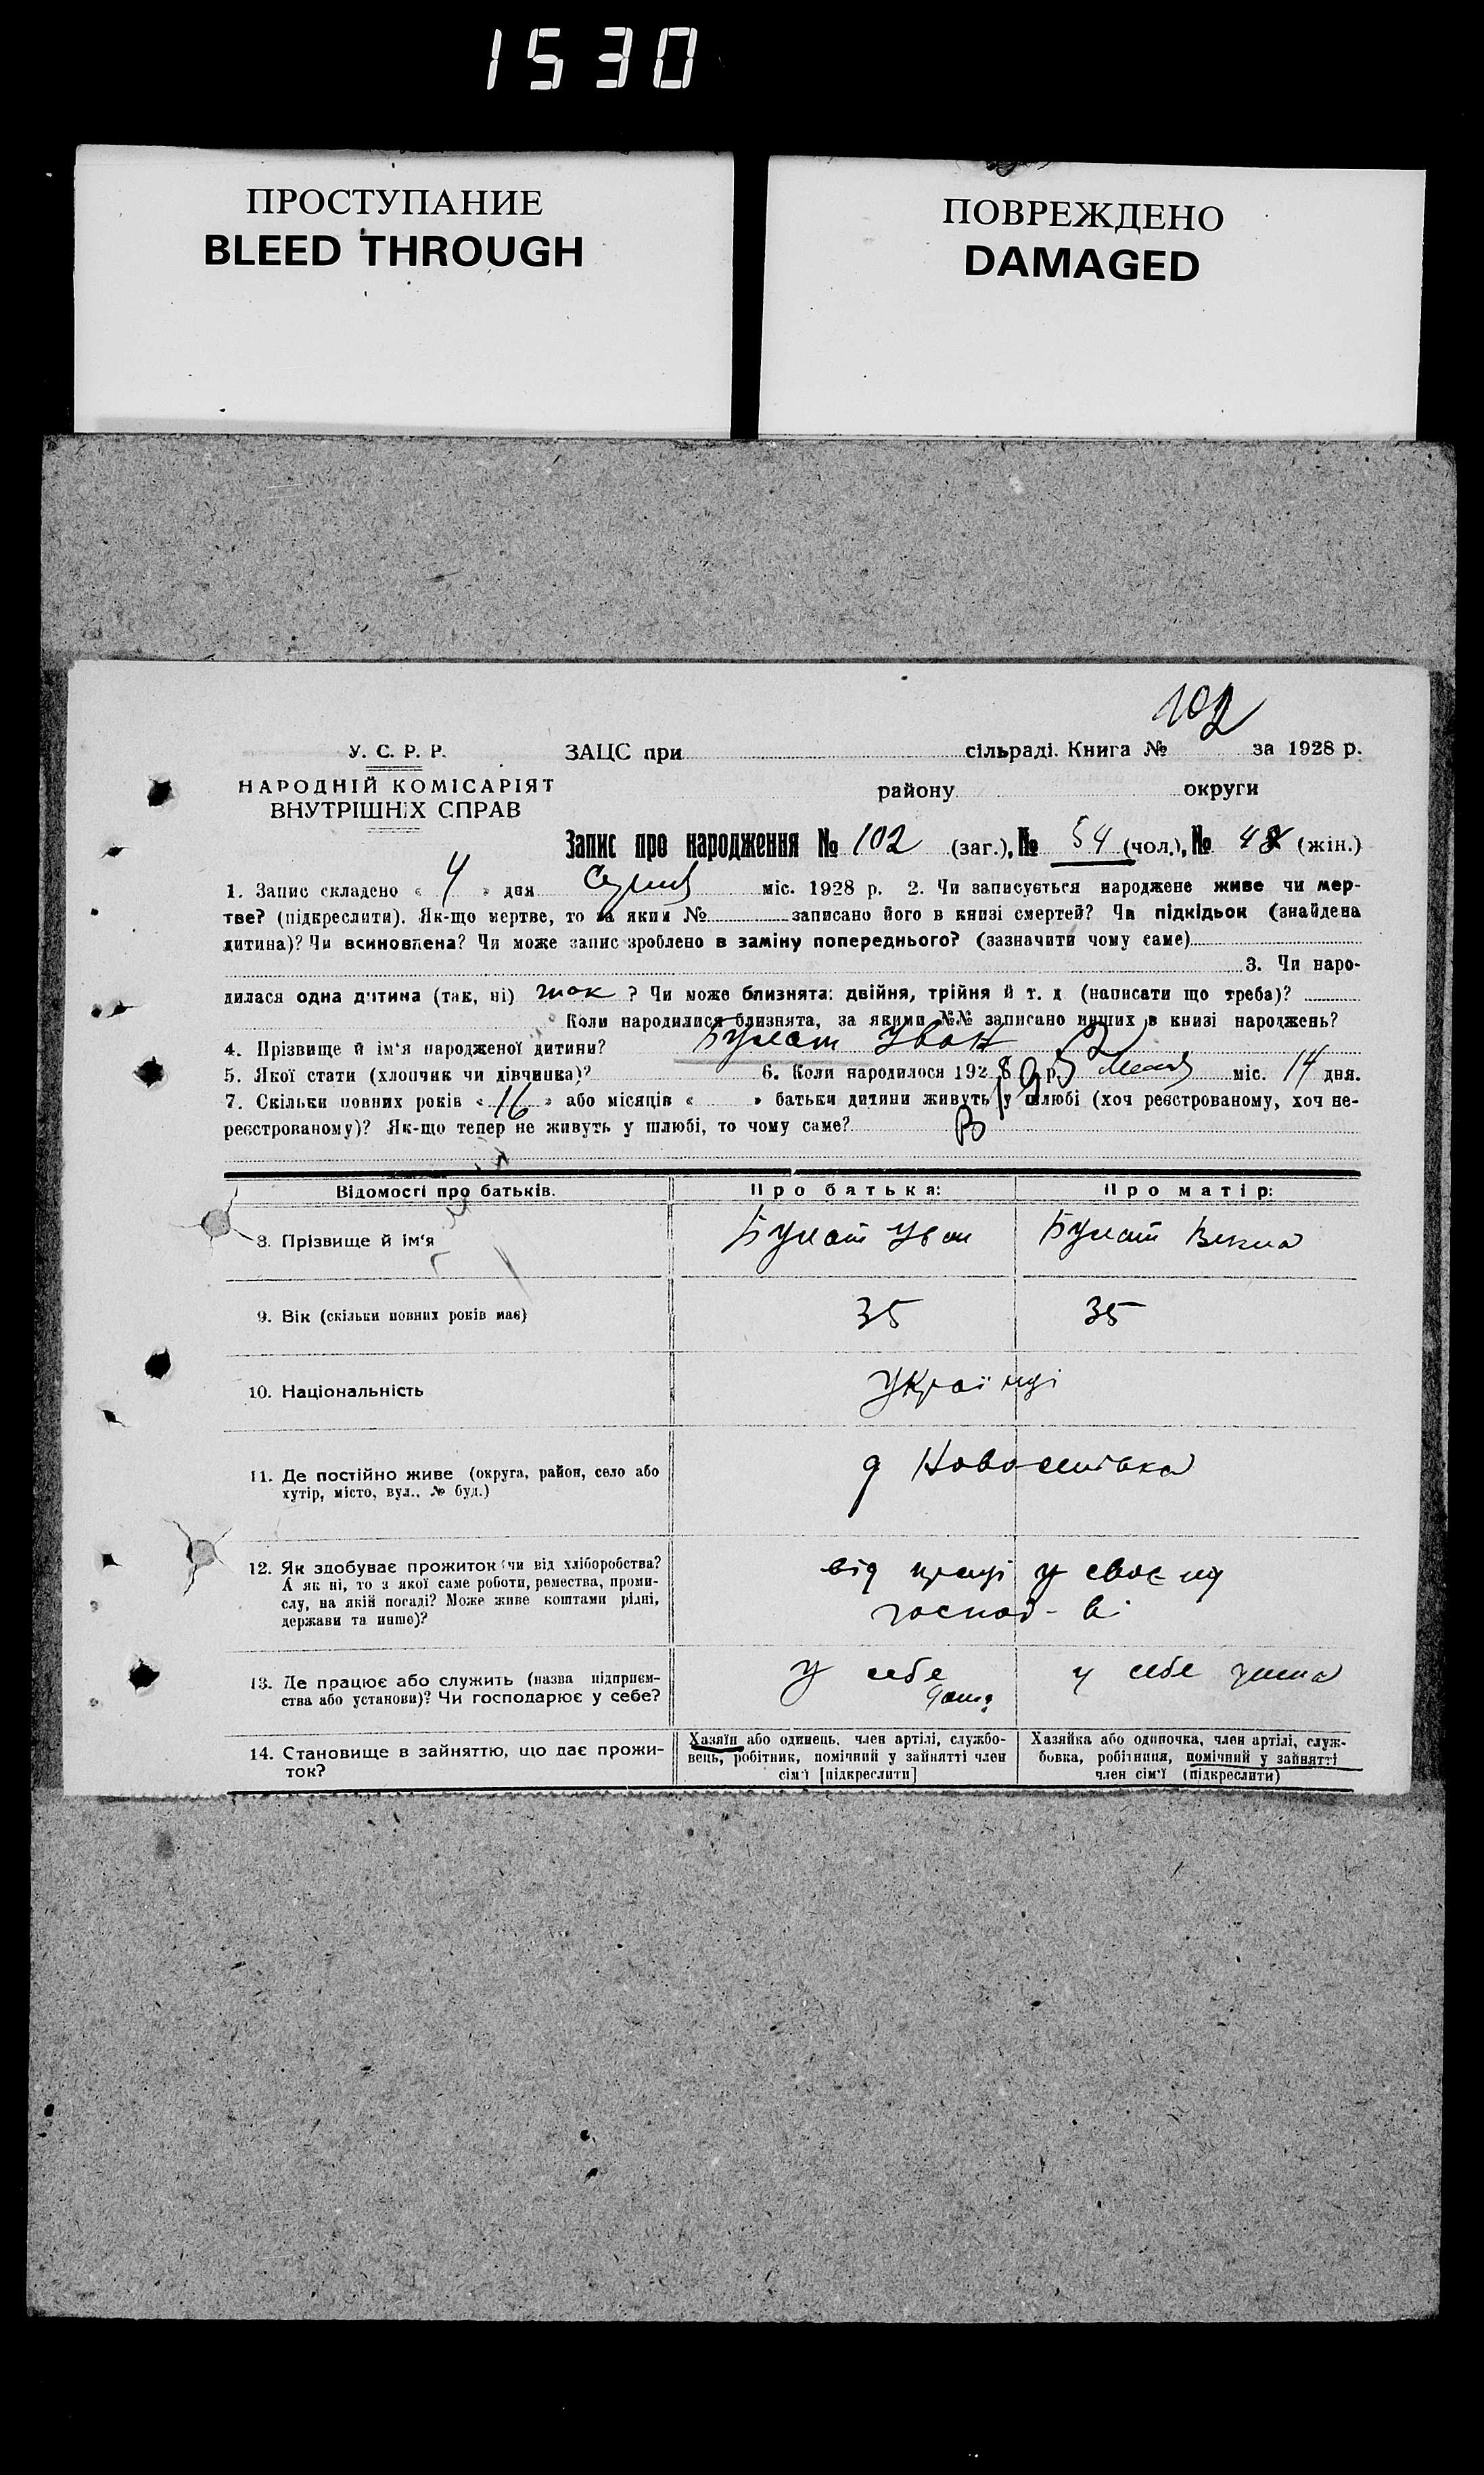 1530
ПРОСТУПАНИЕ
BLEED THROUGH
ПОВРЕЖДЕНО
DAMAGED
102
У. С. Р. Р.
НАРОДНІЙ КОМІСАРІЯТ
ВНУТРІШНІХ СПРАВ
ЗАЦС при сільраді. Книга № за 1928 р.
району округи
Запис про народження № 102 (заг.), № 54 (чол.), № 48 (жін.)
1. Запис складено « 4 » дня міс. 1928 р. 2. Чи записується народжене живе чи мер-
тве? (підкреслити). Як-що мертве, то за яким № записано його в книзі смертей? Чи підкідьок (знайдена
дитина)? Чи всиновлена? Чи може запис зроблено в заміну попереднього? (зазначити чому саме)
3. Чи наро-
дилася одна дитина (так, ні) так ? Чи може близнята: двійня, трійня й т. д. (написати що треба)?
Коли народилися близнята, за якими №№ записано инших в книзі народжень?
4. Прізвище й ім'я народженої дитини? Булат Іван
5. Якої стати (хлопчик чи дівчинка)? 6. Коли народилося 1928 р. міс. 14 дня.
7. Скільки повних років « 16 » або місяців « » батьки дитини живуть у шлюбі (хоч реєстрованому, хоч не-
реєстрованому)? Як-що тепер не живуть у шлюбі, то чому саме?
Відомості про батьків.
Про батька:
Про матір:
8. Прізвище й ім'я
Булат Іван
Булат
9. Вік (скільки повних років має)
35
35
10. Національність
Українці
11. Де постійно живе (округа, район, село або
хутір, місто, вул., № буд.)
12. Як здобуває прожиток (чи від хліборобства?
А як ні, то з якої саме роботи, ремества, проми-
слу, на якій посаді? Може живе коштами рідні,
держави та инше)?
від праці у своєму
господ-ві
13. Де працює або служить (назва підприєм-
ства або установи)? Чи господарює у себе?
у себе
дома
у себе дома
14. Становище в зайняттю, що дає прожи-
ток?
Хазяїн або одинець, член артілі, службо-
вець, робітник, помічний у зайнятті член
сім'ї [підкреслити]
Хазяйка або одиночка, член артілі, служ-
бовка, робітниця, помічний у зайнятті
член сім'ї (підкреслити)